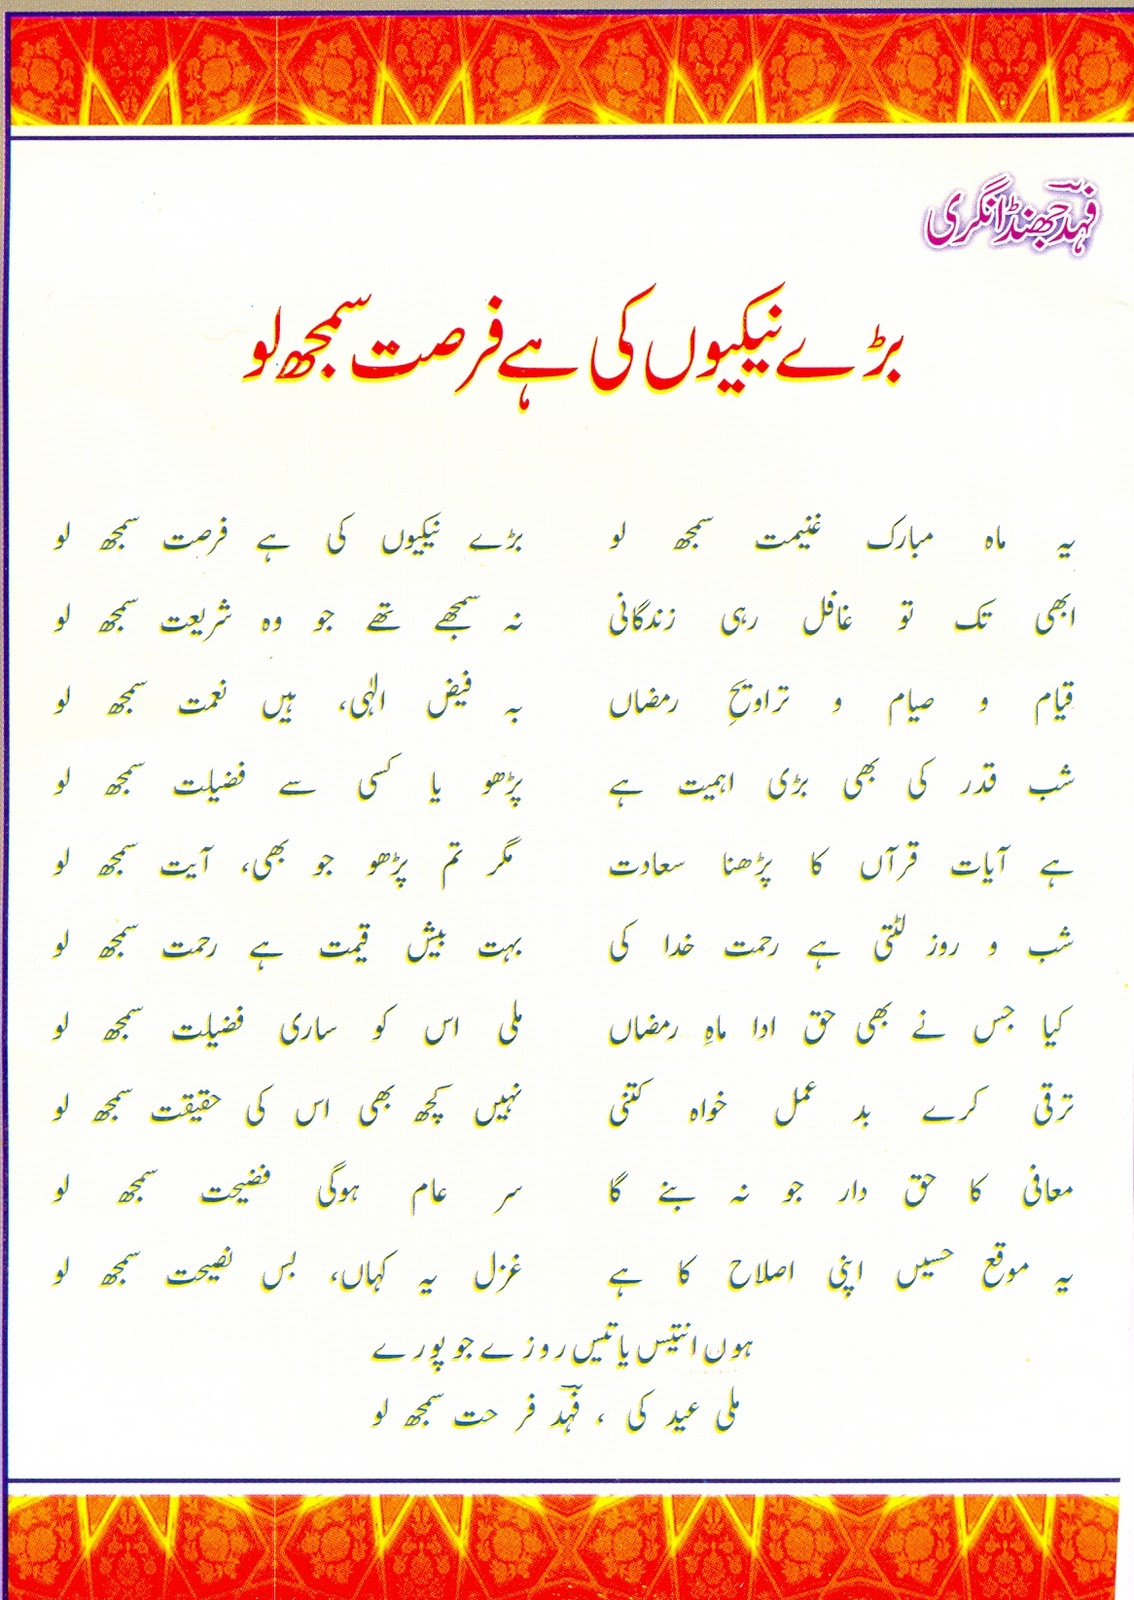 فہد جھنڈانگری
بڑے نیکیوں کی ہے فرصت سمجھ لو
یہ ماہ مبارک غنیمت سمجھ لو بڑے نیکیوں کی ہے فرصت سمجھ لو
ابھی تک تو غافل رہی زندگانی نہ سمجھے تھے جو وہ شریعت سمجھ لو
قیام و صیام و تراویحِ رمضاں بہ فیض الٰہی، ہیں نعمت سمجھ لو
شب قدر کی بھی بڑی اہمیت ہے پڑھو یا کسی سے فضیلت سمجھ لو
ہے آیات قرآں کا پڑھنا سعادت مگر تم پڑھو جو بھی، آیت سمجھ لو
شب و روز لٹتی ہے رحمت خدا کی بہت بیش قیمت ہے رحمت سمجھ لو
کیا جس نے بھی حق ادا ماہِ رمضاں ملی اس کو ساری فضیلت سمجھ لو
ترقی کرے بد عمل خواہ کتنی نہیں کچھ بھی اس کی حقیقت سمجھ لو
معافی کا حق دار جو نہ بنے گا سر عام ہوگی فضیحت سمجھ لو
یہ موقع حسیں اپنی اصلاح کا ہے غزل یہ کہاں، بس نصیحت سمجھ لو
ہوں انتیس یا تیس روزے جو پورے
ملی عید کی ، فہد فرحت سمجھ لو